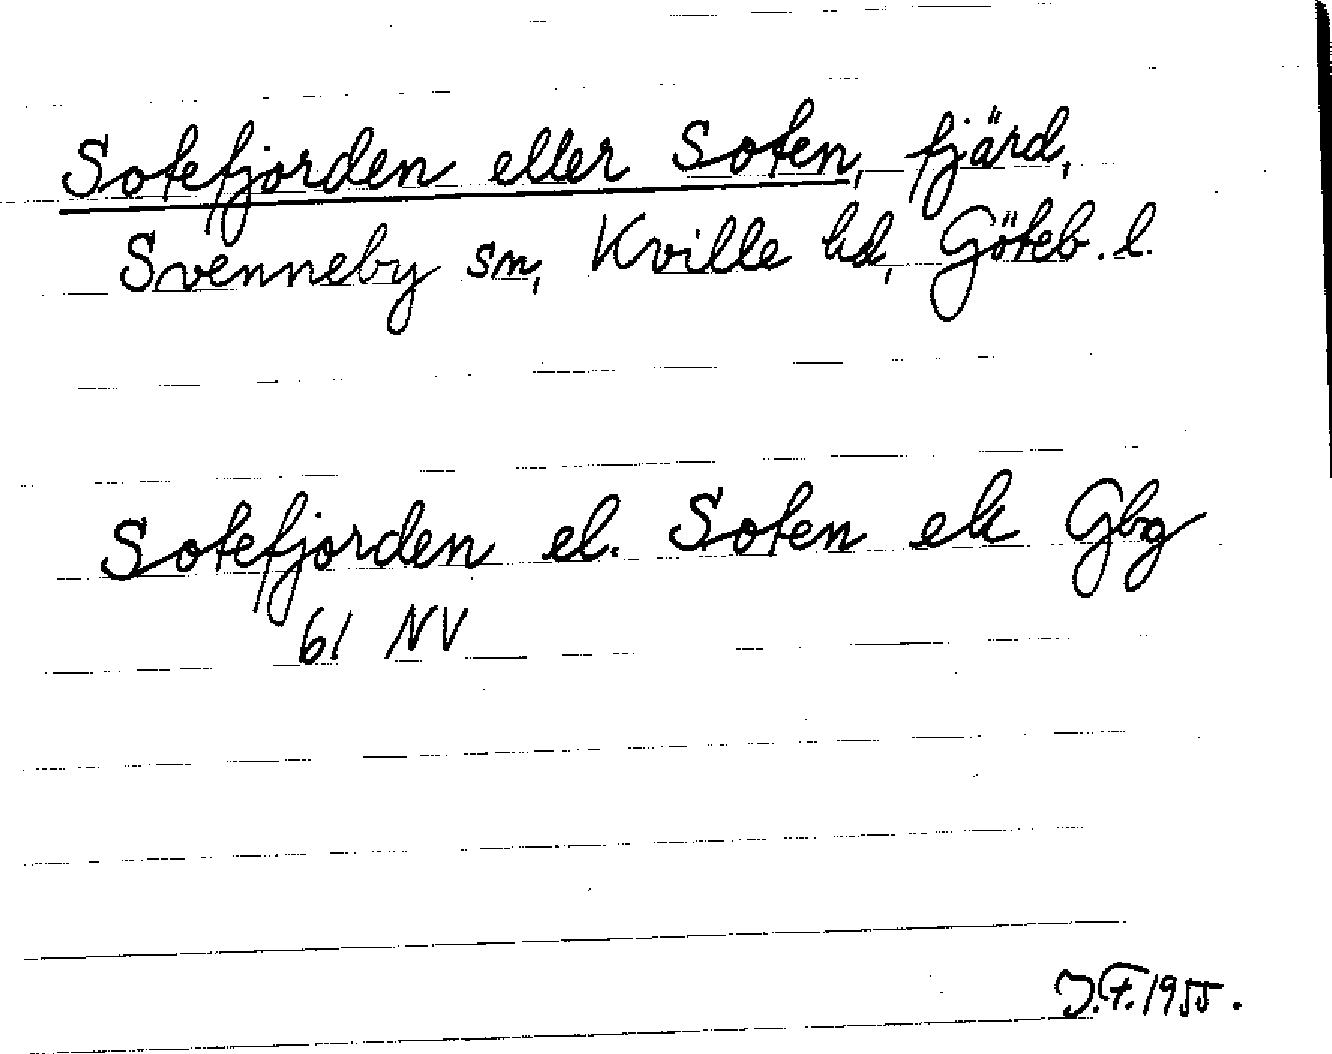 Sotefjorden eller Soten, fjärd,
Svenneby sn, Kville hd, Göteb. l.
Sotefjorden el. Soten ek Gbg
61 NV
J.F. 1955.